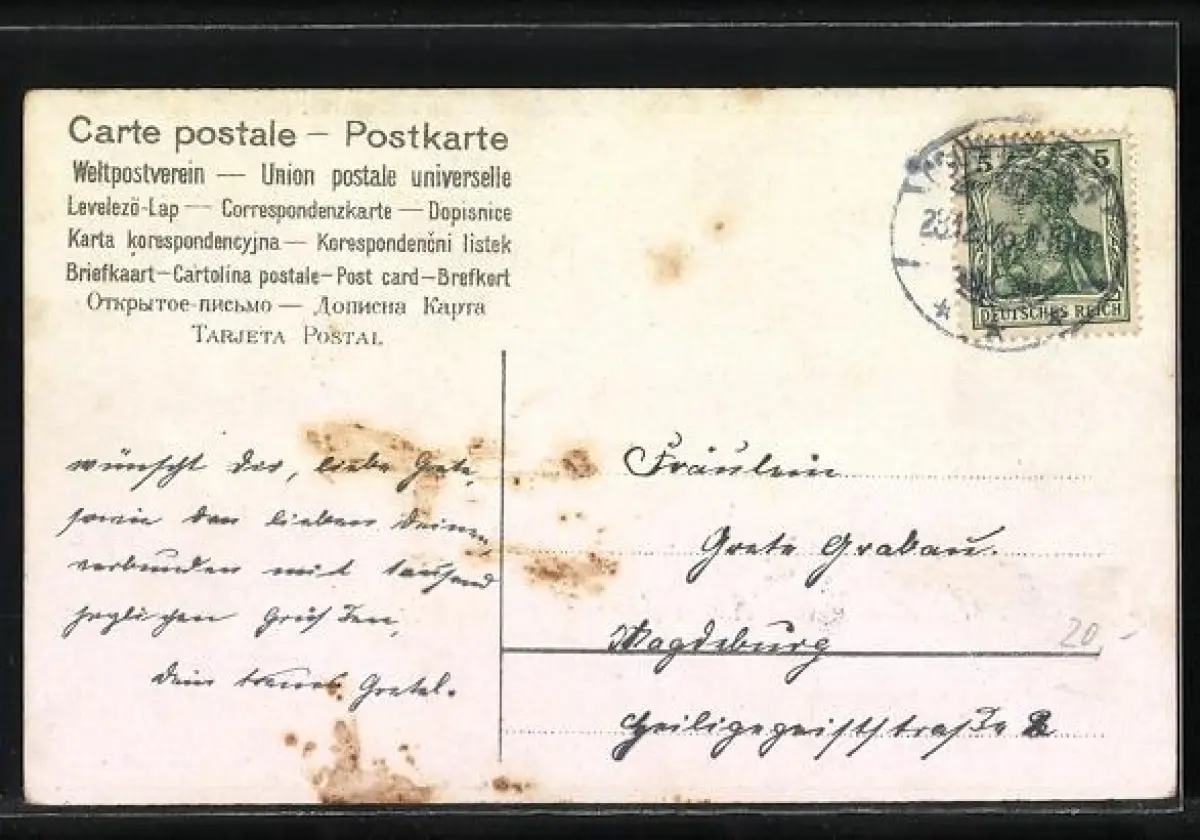 Carte postale – Postkarte
Weltpostverein — Union postale universelle
Levelezö-Lap — Correspondenzkarte — Dopisnice
Karta korespondencyjna — Korespondenčni listek
Briefkaart — Cartolina postale – Post card – Brefkort
Открытое письмо — Дописна Карта
TARJETA POSTAL
5 5
DEUTSCHES REICH
wünscht Dir, liebe Grete,
sowie den lieben Deinen,
verbunden mit tausend
herzlichen Grüßen,
Dein treues Gretel.
Fräulein
Grete Grabau.
Magdeburg
Heiligegeiststraße
20,-